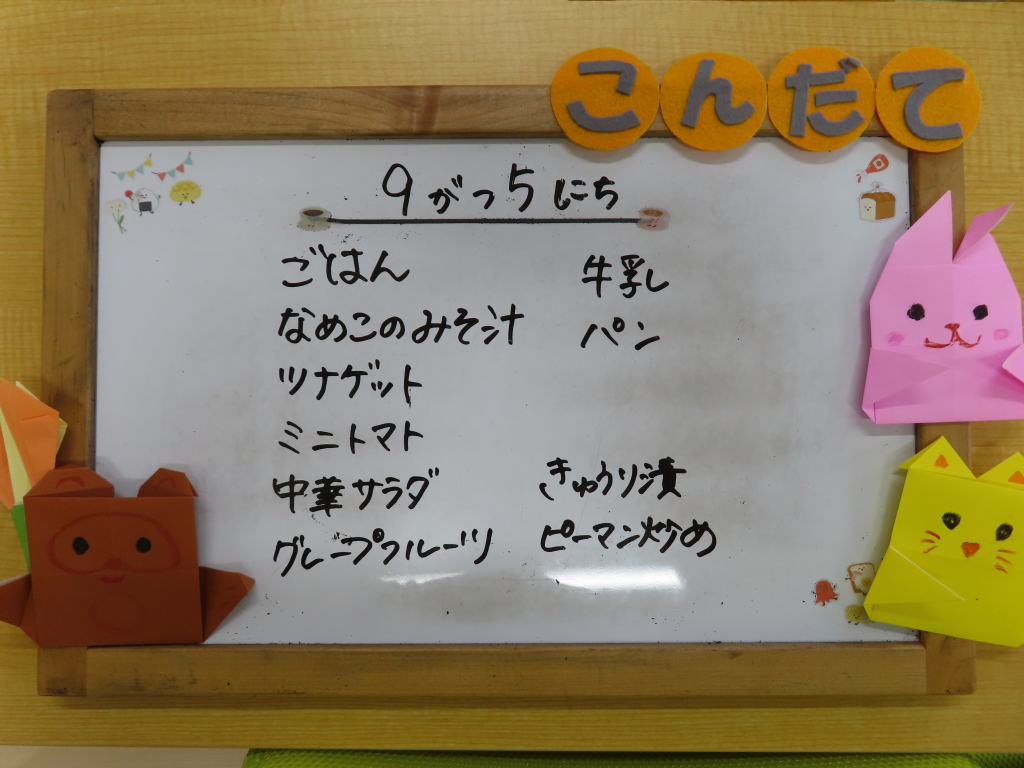 こんだて
9がつ5にち
ごはん
なめこのみそ汁
ツナゲット
ミニトマト
中華サラダ
グレープフルーツ
牛乳
パン
きゅうり漬
ピーマン炒め